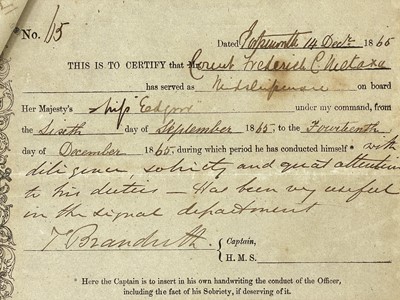 No. 15
Dated Portsmouth 14 Decr. 1865
THIS IS TO CERTIFY that Mr. Corent Frederick C Metaxa
has served as Midshipman on board
Her Majesty's Ship Edgar under my command, from
the Sixth day of September 1865, to the Fourteenth
day of December 1865, during which period he has conducted himself * with
diligence, sobriety and great attention
to his duties — Has been very useful
in the signal department
T Brandreth Captain,
H.M.S.
* Here the Captain is to insert in his own handwriting the conduct of the Officer,
including the fact of his Sobriety, if deserving of it.